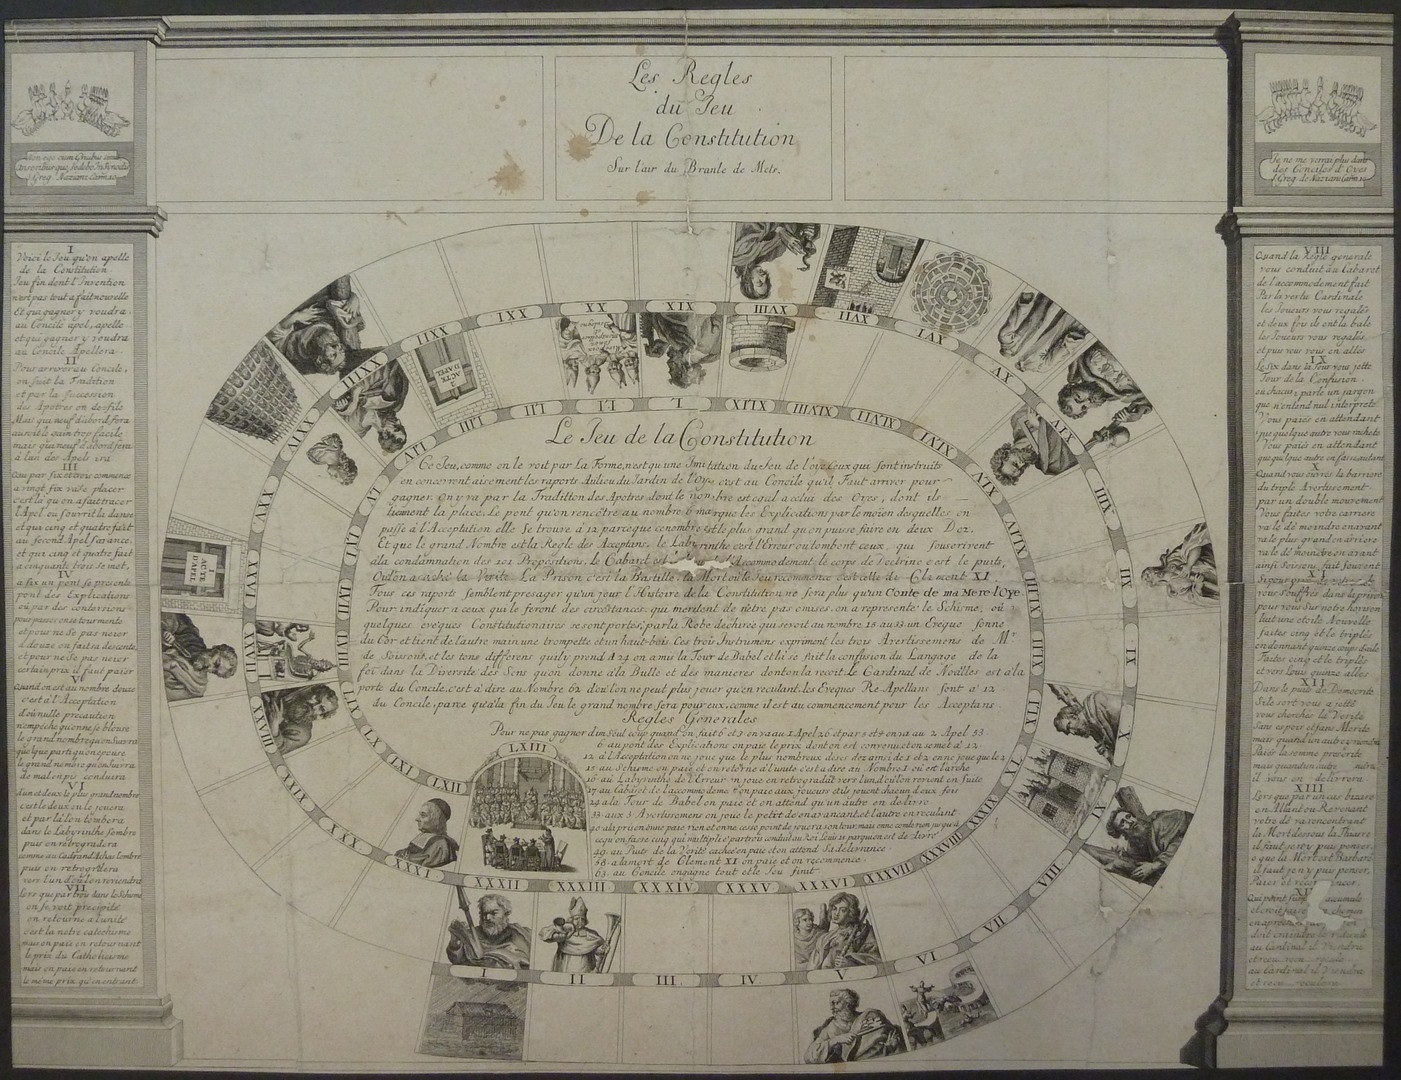 Les Regles
du Jeu
De la Constitution
Sur l'air du Branle de Mets.
Non ego cum Gruibus simul
Anseribusque sedebo In Synodis
S. Greg. Nazianz. Carm. 10
Je ne me verrai plus dans
des Conciles d'Oyes
S. Greg. de Nazianz Carm. 10
I
Voici le Jeu qu'on apelle
de la Constitution
Jeu fin dont l'Invention
n'est pas tout a fait nouvelle
Et qui gagner y voudra
au Concile apel, apelle
et qui gagner y voudra
au Concile Apellera
II
Pour arriver au Concile,
on suit la Tradition
et par la succession
des Apotres on de-file
Mais qui neuf d'abord fera
auroit le gain tres facile
mais qui neuf d'abord fera
a l'un des Apels ira
III
Qui par six et trois commence
a vingt six va se placer
c'est la qu'on a fait tracer
l'Apel ou s'ouvrit la danse
et qui cinq et quatre fait
au second Apel s'avance
et qui cinq et quatre fait
a cinquante trois se met,
IV
a six un pont se presente
pont des Explications
ou par des contorsions
pour passer on se tourmente
et pour ne se pas neier
a douze on fait sa descente
et pour ne se pas neier
certain prix il faut paier
V
Quand on est au nombre douze
c'est a l'Acceptation
d'ou nulle precaution
n'empeche qu'on ne se blouse
le grand nombre qu'on suivra
quelque parti qu'on epouse
le grand nombre qu'on suivra
de mal en pis conduira
VI
d'un et deux le plus grand nombre
c'est le deux ou le jouera
et par la l'on tombera
dans le Labyrinthe sombre
puis on retrogradera
comme au Cadran d'Achas l'ombre
puis on retrogradera
vers l'un d'ou l'on reviendra
VII
Lors que par trois dans le Schisme
on se voit precipité
on retourne a l'unité
c'est la notre catechisme
mais on paie en retournant
le prix du Catholicisme
mais on paie en retournant
le même prix qu'en entrant
VIII
Quand la Regle generale
vous conduit au Cabaret
de l'accommodement fait
Par la vertu Cardinale
les Joueurs vous regalés
et deux fois ils ont la bale
les Joueurs vous regalés
et puis vous vous en allés
IX
Le six dans la Tour vous jette
Tour de la Confusion
ou chacun parle un jargon
que n'entend nul interprete
Vous paiés en attendant
que quelque autre vous rachete
Vous paiés en attendant
que quelque autre en fasse autant
X
Quand vous ouvrés la barriere
du triple Avertissement
par un double mouvement
Vous faites votre carriere
va le dé moindre en avant
va le plus grand en arriere
va le dé moindre en avant
ainsi Soissons, fait souvent
XI
Si pour
vous souffrés dans la prison
pour vous sur notre horison
luit une etoile Nouvelle
faites cinq et le triplés
en donnant quinze coups d'aile
Faites cinq et le triplés
et vers Louis quinze allés
XII
Dans le puits de Democrite
Si le sort vous a jetté
vous cherchés la Verité
Sans espoir et sans Merite
mais quand un autre
Paiés la somme prescrite
mais quand un autre viendra
il vous en delivrera
XIII
Lors que par un cas bizare
en Allant ou Revenant
votre dé va rencontrant
la Mort dessous la Thiare
il faut sans y puis penser,
o que la Mort est Barbare
il faut sans y puis penser,
Paier et recommencer
accumule
chemin
au Cardinal il viendra
et recu recule
au Cardinal il viendra
et recu reculera
Le Jeu de la Constitution
Ce Jeu, comme on le voit par la Forme, n'est qu'une Imitation du Jeu de l'oye. Ceux qui sont instruits
en concevront aisement les raports. Au lieu du Jardin de l'Oye, c'est au Concile qu'il Faut arriver pour
gagner. On y va par la Tradition des Apotres, dont le nombre est egal a celui des Oyes, dont ils
tiennent la place. Le pont qu'on rencontre au nombre 6 marque les Explications par le moien desquelles on
passe à l'Acceptation elle se trouve à 12 parceque ce nombre est le plus grand qu'on puisse faire en deux Dez.
Et que le grand Nombre est la Regle des Acceptans. le Labyrinthe c'est l'Erreur ou tombent ceux, qui souscrivent
a la condamnation des 101 Propositions, le Cabaret est l'Accommodement le corps de Doctrine c'est le puits,
Où l'on a caché la Verité. La Prison c'est la Bastille, la Mort ou le Jeu recommence c'est celle de Clement XI.
Tous ces raports semblent presager qu'un jour l'Histoire de la Constitution ne sera plus qu'un Conte de ma Mere-l'Oye.
Pour indiquer a ceux qui le feront des circonstances, qui meritent de n'être pas omises, on a representé le Schisme, où
quelques eveques Constitutionaires se sont portés, par la Robe dechirée qui se voit au nombre 15 au 33 un Eveque sonne
du Cor et tient de l'autre main une trompette et un haut-bois. Ces trois Instrumens expriment les trois Avertissemens de Mr
de Soissons, et les tons differens qu'il y prend A 24 on a mis la Tour de Babel et là se fait la confusion du Langage de la
foi dans la Diversité des Sens qu'on donne à la Bulle et des manieres dont on la recoit. Le Cardinal de Noailles est à la
porte du Concile, c'est à dire au Nombre 62 d'ou l'on ne peut plus jouer qu'en reculant, les Eveques Re Apellans sont à 12
du Concile, parce qu'à la fin du Jeu le grand nombre sera pour eux, comme il est au commencement pour les Acceptans
Regles Generales
Pour ne pas gagner d'un seul coup quand on fait 6 et 3 on va au 1 Apel 26 et par 5 et 4 on va au 2 Apel 53
6. au pont des Explications on paie le prix dont on est convenu et on se met a 12
12 à l'Acceptation on ne joue que le plus nombreux des deux dez ainsi de 1 et 2 on ne joue que le 2
15 au Schisme on paie et on retourne à l'unité c'est a dire au Nombre I où est l'arche
16 au Labyrinthe de l'Erreur on joue en retrogradant vers l'un d'ou l'on revient en suite
17 au Cabaret de l'accommodement on paie aux joueurs et ils jouent chacun deux fois
24 a la Tour de Babel on paie et on attend qu'un autre en delivre
33 aux 3 Avertissemens on joue le petit dé en avancant et l'autre en reculant
49 au Puits de la Verité cachée on paie et on attend Sa delivrance
58 à la mort de Clement XI on paie et on recommence
63 au Concile on gagne tout et le Jeu finit
I
II
III
IV
V
VI
VII
VIII
IX
X
XI
XII
XIII
XIV
XV
XVI
XVII
XVIII
XIX
XX
XXI
XXII
XXIII
XXIV
XXV
XXVI
1 ACTE D'APEL
XXVII
XXVIII
XXIX
XXX
XXXI
XXXII
XXXIII
XXXIV
XXXV
XXXVI
XXXVII
XXXVIII
XXXIX
XL
XLI
XLII
XLIII
XLIV
XLV
XLVI
XLVII
XLVIII
XLIX
L
LI
LII
LIII
2 ACTE D'APEL
LIV
LV
LVI
LVII
LVIII
LIX
LX
LXI
LXII
LXIII